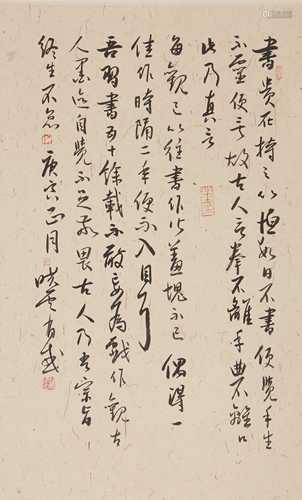 書贵在持之以恒如日不書便覺手生
不靈便言故古人言拳不離手曲不離口
此乃真言
每觀已以往書作皆羞塊不已偶得一
佳作時隔二年便不入目
吾習書五十餘載不敢妄為戲作觀古
人墨迹自覺不足敬畏古人乃吾宗旨
终生不怠 庚寅正月